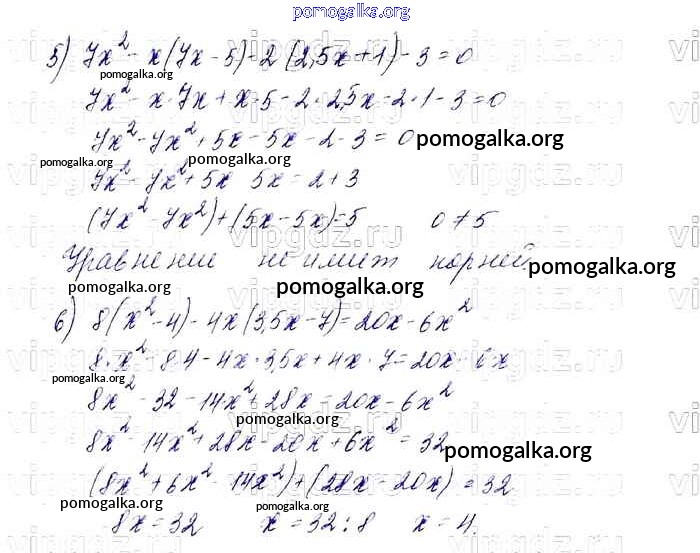 pomogalka.org
5) 7x² - x(7x - 5) - 2(2,5x + 1) - 3 = 0
pomogalka.org
7x² - x·7x + x·5 - 2·2,5x - 2·1 - 3 = 0
7x² - 7x² + 5x - 5x - 2 - 3 = 0 pomogalka.org
pomogalka.org pomogalka.org
7x² - 7x² + 5x 5x = 2 + 3
(7x² - 7x²) + (5x - 5x) = 5 0 ≠ 5
Уравнение не имеет корней pomogalka.org
pomogalka.org pomogalka.org
6) 8(x² - 4) - 4x(3,5x - 7) = 20x - 6x²
8·x² - 8·4 - 4x·3,5x + 4x·7 = 20x - 6x
pomogalka.org
8x² - 32 - 14x² + 28x = 20x - 6x²
pomogalka.org
8x² - 14x² + 28x - 20x + 6x² = 32
pomogalka.org
(8x² + 6x² - 14x²) + (28x - 20x) = 32
pomogalka.org pomogalka.org
8x = 32 x = 32 : 8 x = 4.